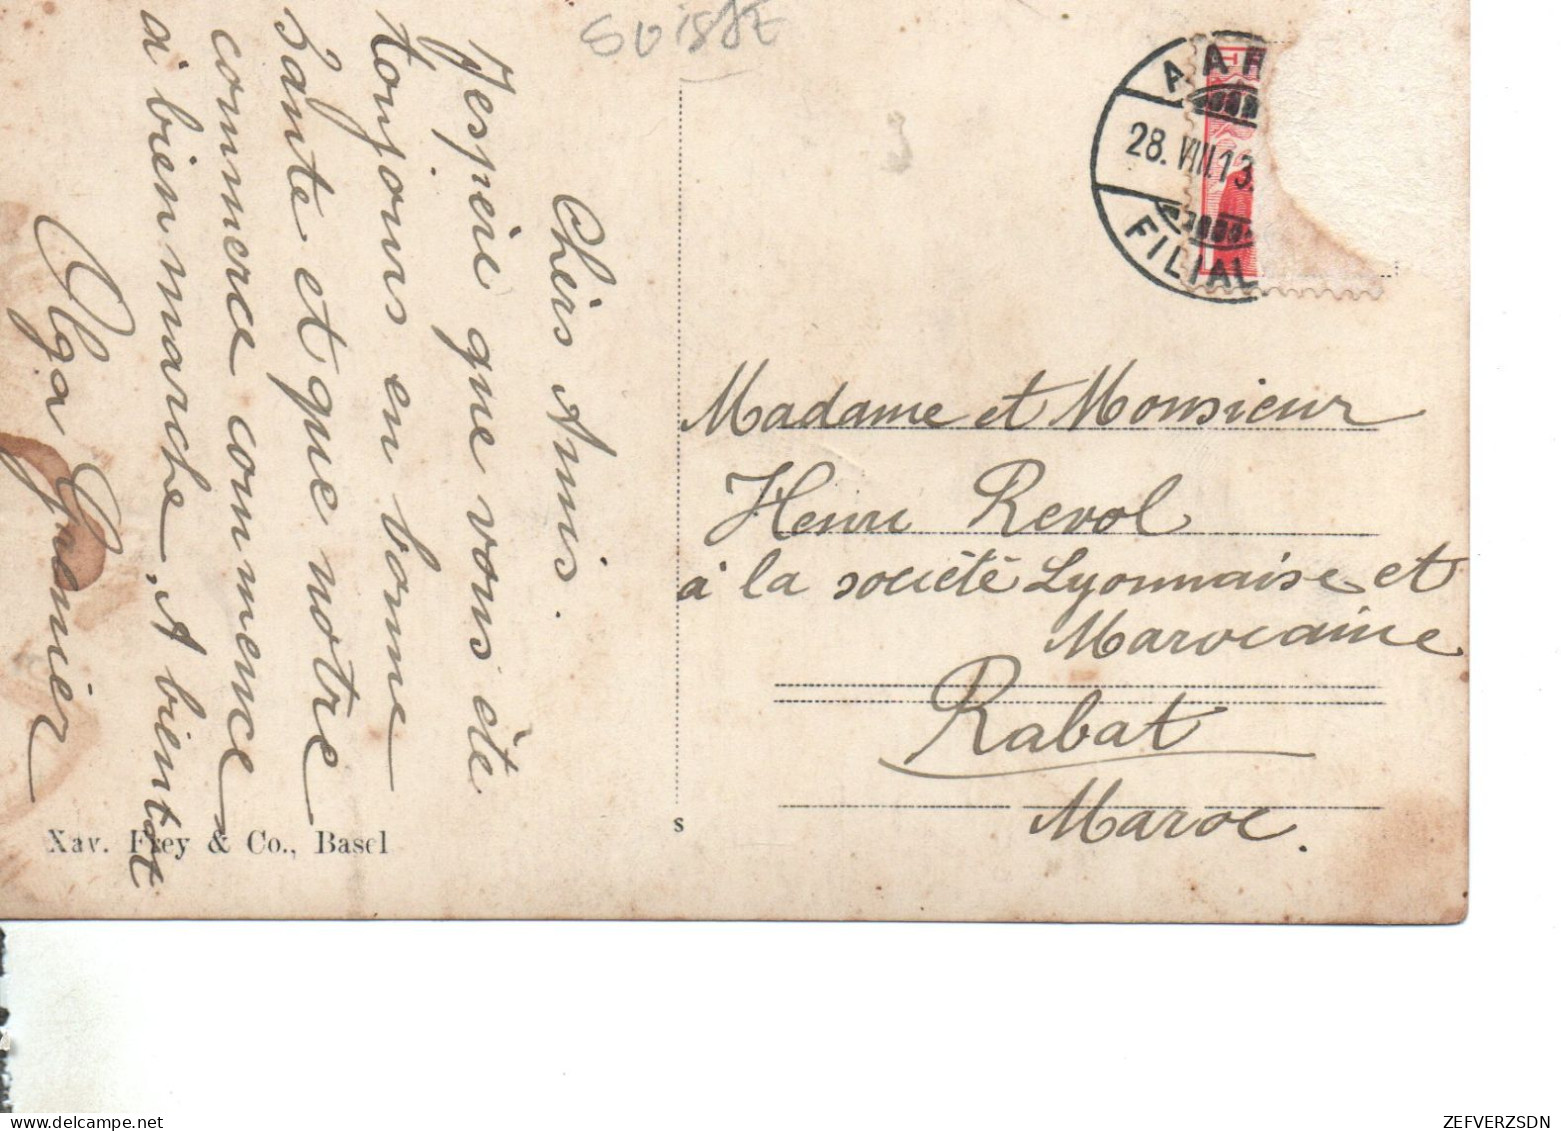 SUISSE
Chèrs Amis.
J'espère que vous ète
toujours en bonne
Sante et que notre
commerce commence
a bien marche, A bientot
Olga Grenier
AAR
28.VIII.13.
FILIAL
Madame et Monsieur
Henri Revol
à la société Lyonnaise et
Marocaine
Rabat
Maroc.
Xav. Frey & Co., Basel
s
ZEFVERZSDN